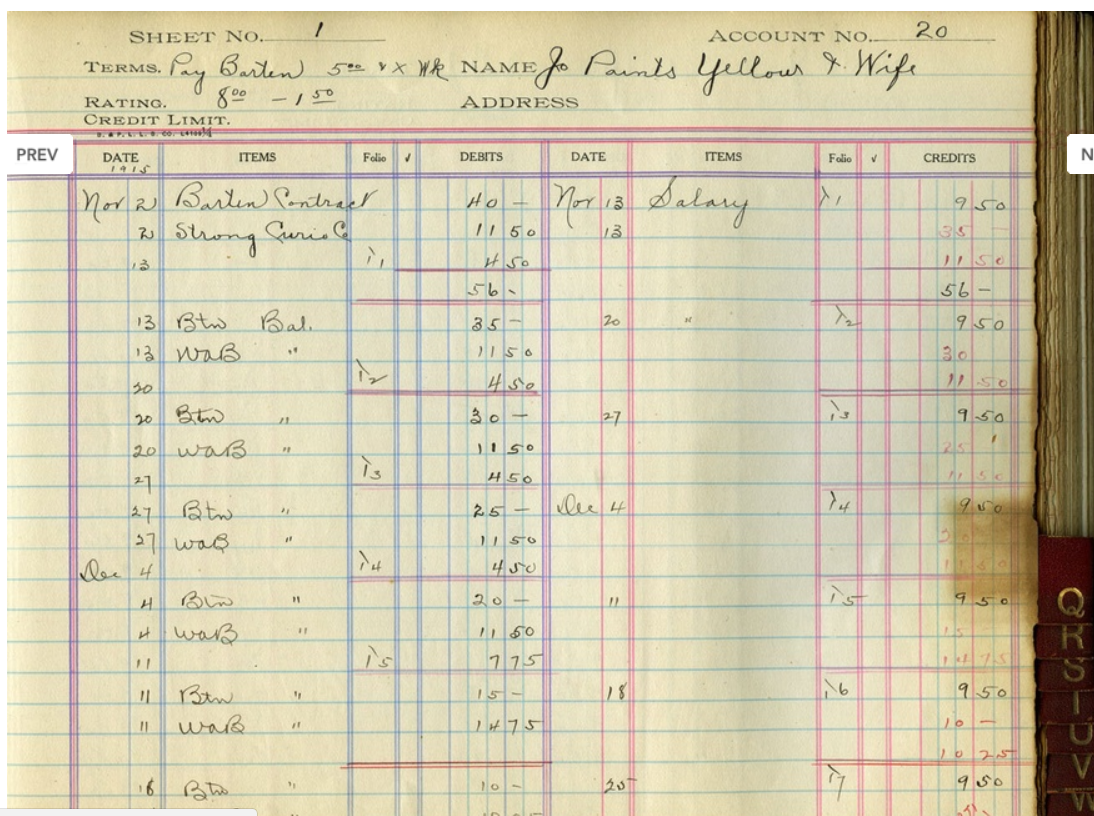 SHEET No. 1 ACCOUNT No. 20
TERMS. Pay Barten 5.00 x Wk NAME Jo Paints Yellow & Wife
RATING. 8.00 – 1.50 ADDRESS
CREDIT LIMIT.
PREV
N
DATE ITEMS Folio √ DEBITS DATE ITEMS Folio √ CREDITS
1915
Nov 2 Barten Contract 40 – Nov 13 Salary 9 50
2 Strong Curio Co 11 50 13 35 –
13 4 50 11 50
56 – 56 –
13 Btn Bal. 35 – 20 " 9 50
13 WaB " 11 50 30
20 4 50 11 50
20 Btn " 30 – 27 9 50
20 WaB " 11 50 25
27 4 50 11 50
27 Btn " 25 – Dec 4 9 50
27 WaB " 11 50 20
Dec 4 4 50 11 50
4 Btn " 20 – 11 9 50
4 WaB " 11 50 15
11 7 75 14 75
11 Btn " 15 – 18 9 50
11 WaB " 14 75 10 –
10 25
18 Btn " 10 – 25 9 50
Q
R
S
T
U
V
W